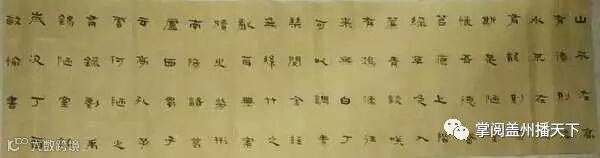 山不在高
有僊則名
水不在深
有龍則靈
斯是陋室
惟吾德馨
苔痕上階
綠草色入
簾青談笑
有鴻儒往
來無白丁
可以調素
琴閱金經
無絲竹之
亂耳無案
牘之勞形
南陽諸葛
廬西蜀子
云亭孔子
云何陋之
有錄劉禹
錫陋室銘
歲次丁
愉書
10100 跨境
掌阅盖州播天下